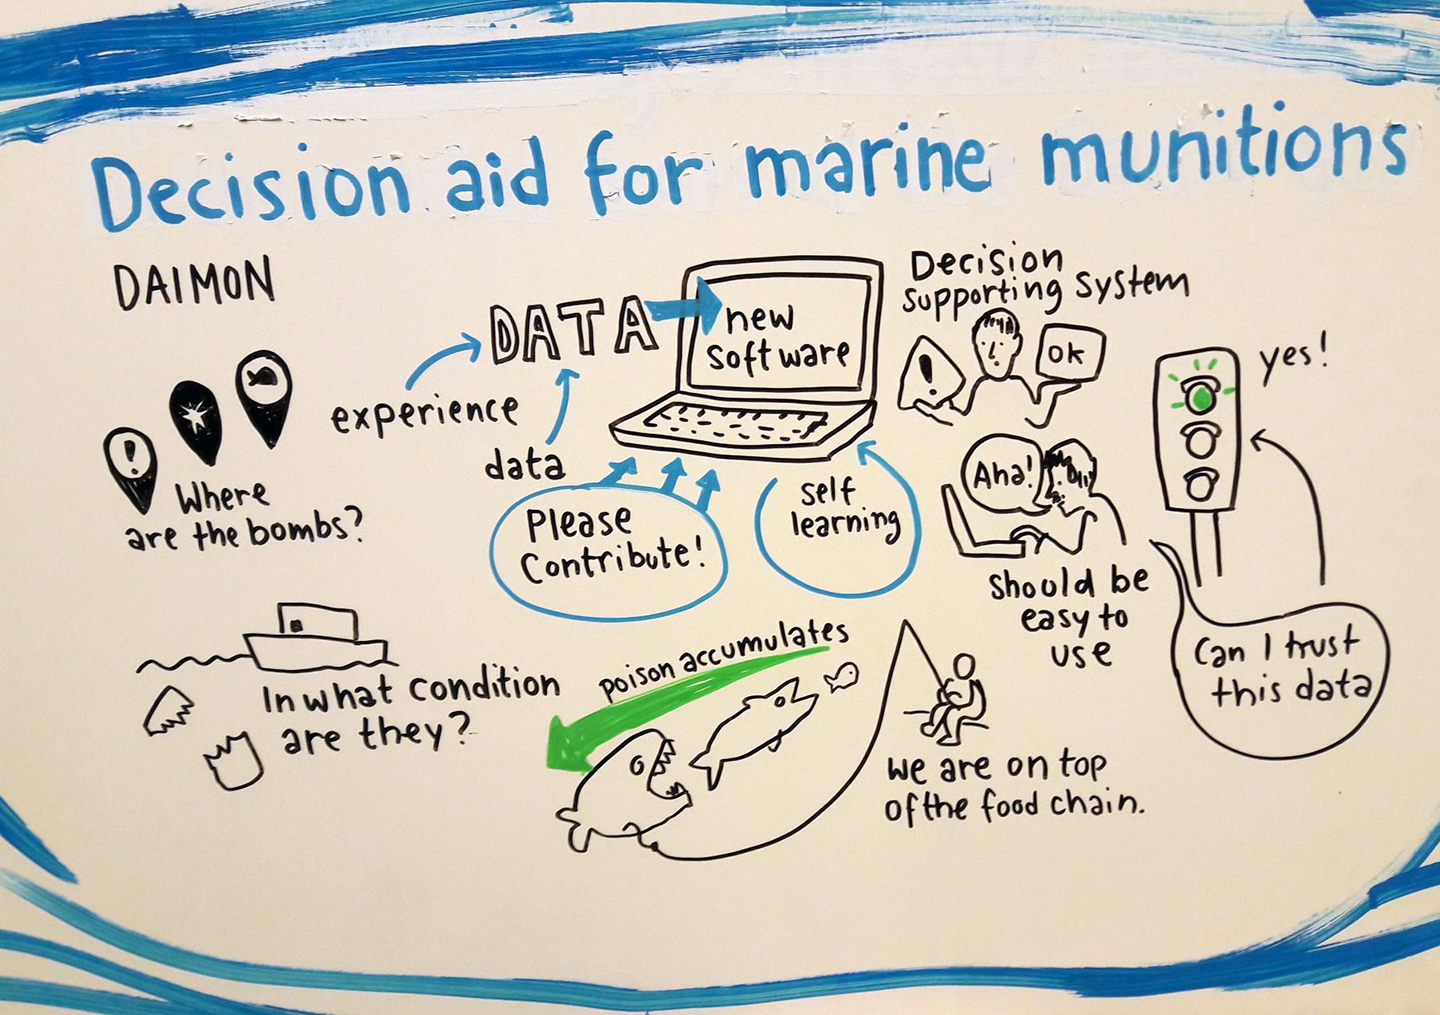 Decision aid for marine munitions
DAIMON
!
Where
are the bombs?
In what condition
are they?
DATA
experience
data
Please
Contribute!
new
software
self
learning
Decision
supporting system
!
OK
Aha!
should be
easy to
use
yes!
Can I trust
this data
poison accumulates
we are on top
of the food chain.